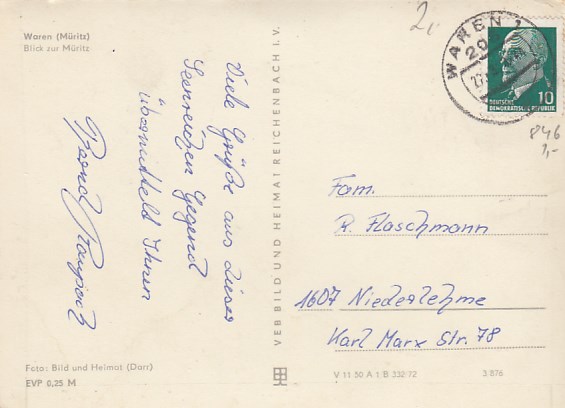 Waren (Müritz)
Blick zur Müritz
Viele Grüße aus dieser
Seenreichen Gegend
übermittelt Ihnen
Bernd
Foto: Bild und Heimat (Darr)
EVP 0,25 M
VEB BILD UND HEIMAT REICHENBACH I. V.
2,-
WAREN 1
20
10
DEUTSCHE
DEMOKRATISCHE REPUBLIK
846
1,-
Fam.
R. Flaschmann
1607 Niederlehme
Karl Marx Str. 78
V 11 50 A 1 B 332/72
3 876